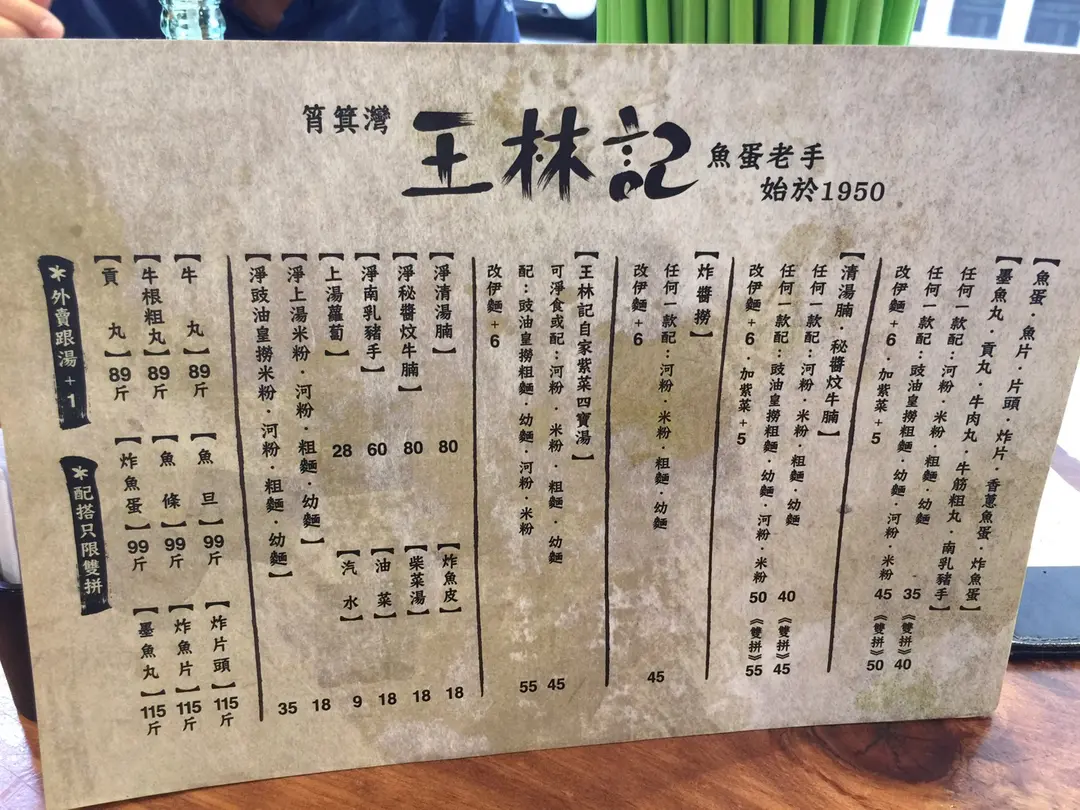 筲箕灣
王林記
魚蛋老手
始於1950
【魚蛋．魚片．片頭．炸片．香蔥魚蛋．炸魚蛋】
【墨魚丸．貢丸．牛肉丸．牛筋粗丸．南乳豬手】
任何一款配：河粉．米粉．粗麵．幼麵 35 《雙拼》40
任何一款配：豉油皇撈粗麵．幼麵．河粉．米粉 45 《雙拼》50
改伊麵+6．加紫菜+5
【清湯腩．秘醬炆牛腩】
任何一款配：河粉．米粉．粗麵．幼麵 40 《雙拼》45
任何一款配：豉油皇撈粗麵．幼麵．河粉．米粉 50 《雙拼》55
改伊麵+6．加紫菜+5
【炸醬撈】
任何一款配：河粉．米粉．粗麵．幼麵 45
改伊麵+6
【王林記自家紫菜四寶湯】
可淨食或配：河粉．米粉．粗麵．幼麵 45
配：豉油皇撈粗麵．幼麵．河粉．米粉 55
改伊麵+6
【淨清湯腩】 80
【炸魚皮】 18
【淨秘醬炆牛腩】 80
【柴菜湯】 18
【淨南乳豬手】 60
【油菜】 18
【上湯蘿蔔】 28
【汽水】 9
【淨上湯米粉．河粉．粗麵．幼麵】 18
【淨豉油皇撈米粉．河粉．粗麵．幼麵】 35
【牛丸】89斤
【牛根粗丸】89斤
【貢丸】89斤
【魚旦】99斤
【魚條】99斤
【炸魚蛋】99斤
【炸片頭】115斤
【炸魚片】115斤
【墨魚丸】115斤
*外賣跟湯+1
*配搭只限雙拼